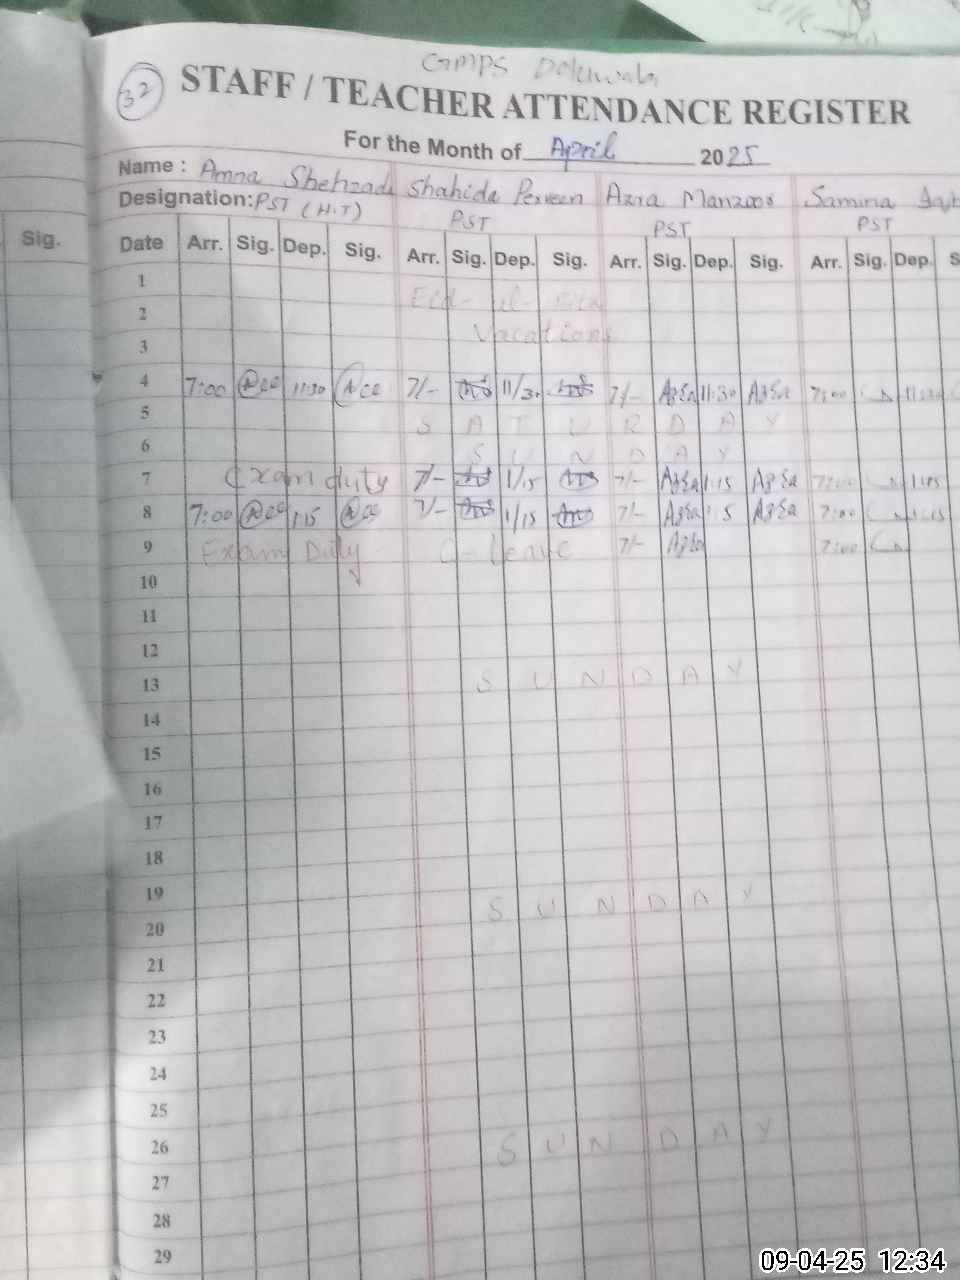 GMPS
32
STAFF / TEACHER ATTENDANCE REGISTER
For the Month of April 2025
Name : Amna Shehzadi Shahida Perveen Azra Manzoor Samina
Designation: PST (H.T) PST PST PST
Sig. Date Arr. Sig. Dep. Sig. Arr. Sig. Dep. Sig. Arr. Sig. Dep. Sig. Arr. Sig. Dep. S
1 Eid-ul-Fitr
2 Vacations
3
4 7:00 11:30 7/- 11/30 7/- 11:30 7:00
5 S A T U R D A Y
6 S U N D A Y
7 Exam duty 7/- 1/15 7/- 1:15 7:00 1:15
8 7:00 1:15 7/- 1/15 7/- 1:15 7:00 1:15
9 Exam Duty C-leave 7/- 7:00
10
11
12
13 S U N D A Y
14
15
16
17
18
19
20 S U N D A Y
21
22
23
24
25
26 S U N D A Y
27
28
29
09-04-25 12:34